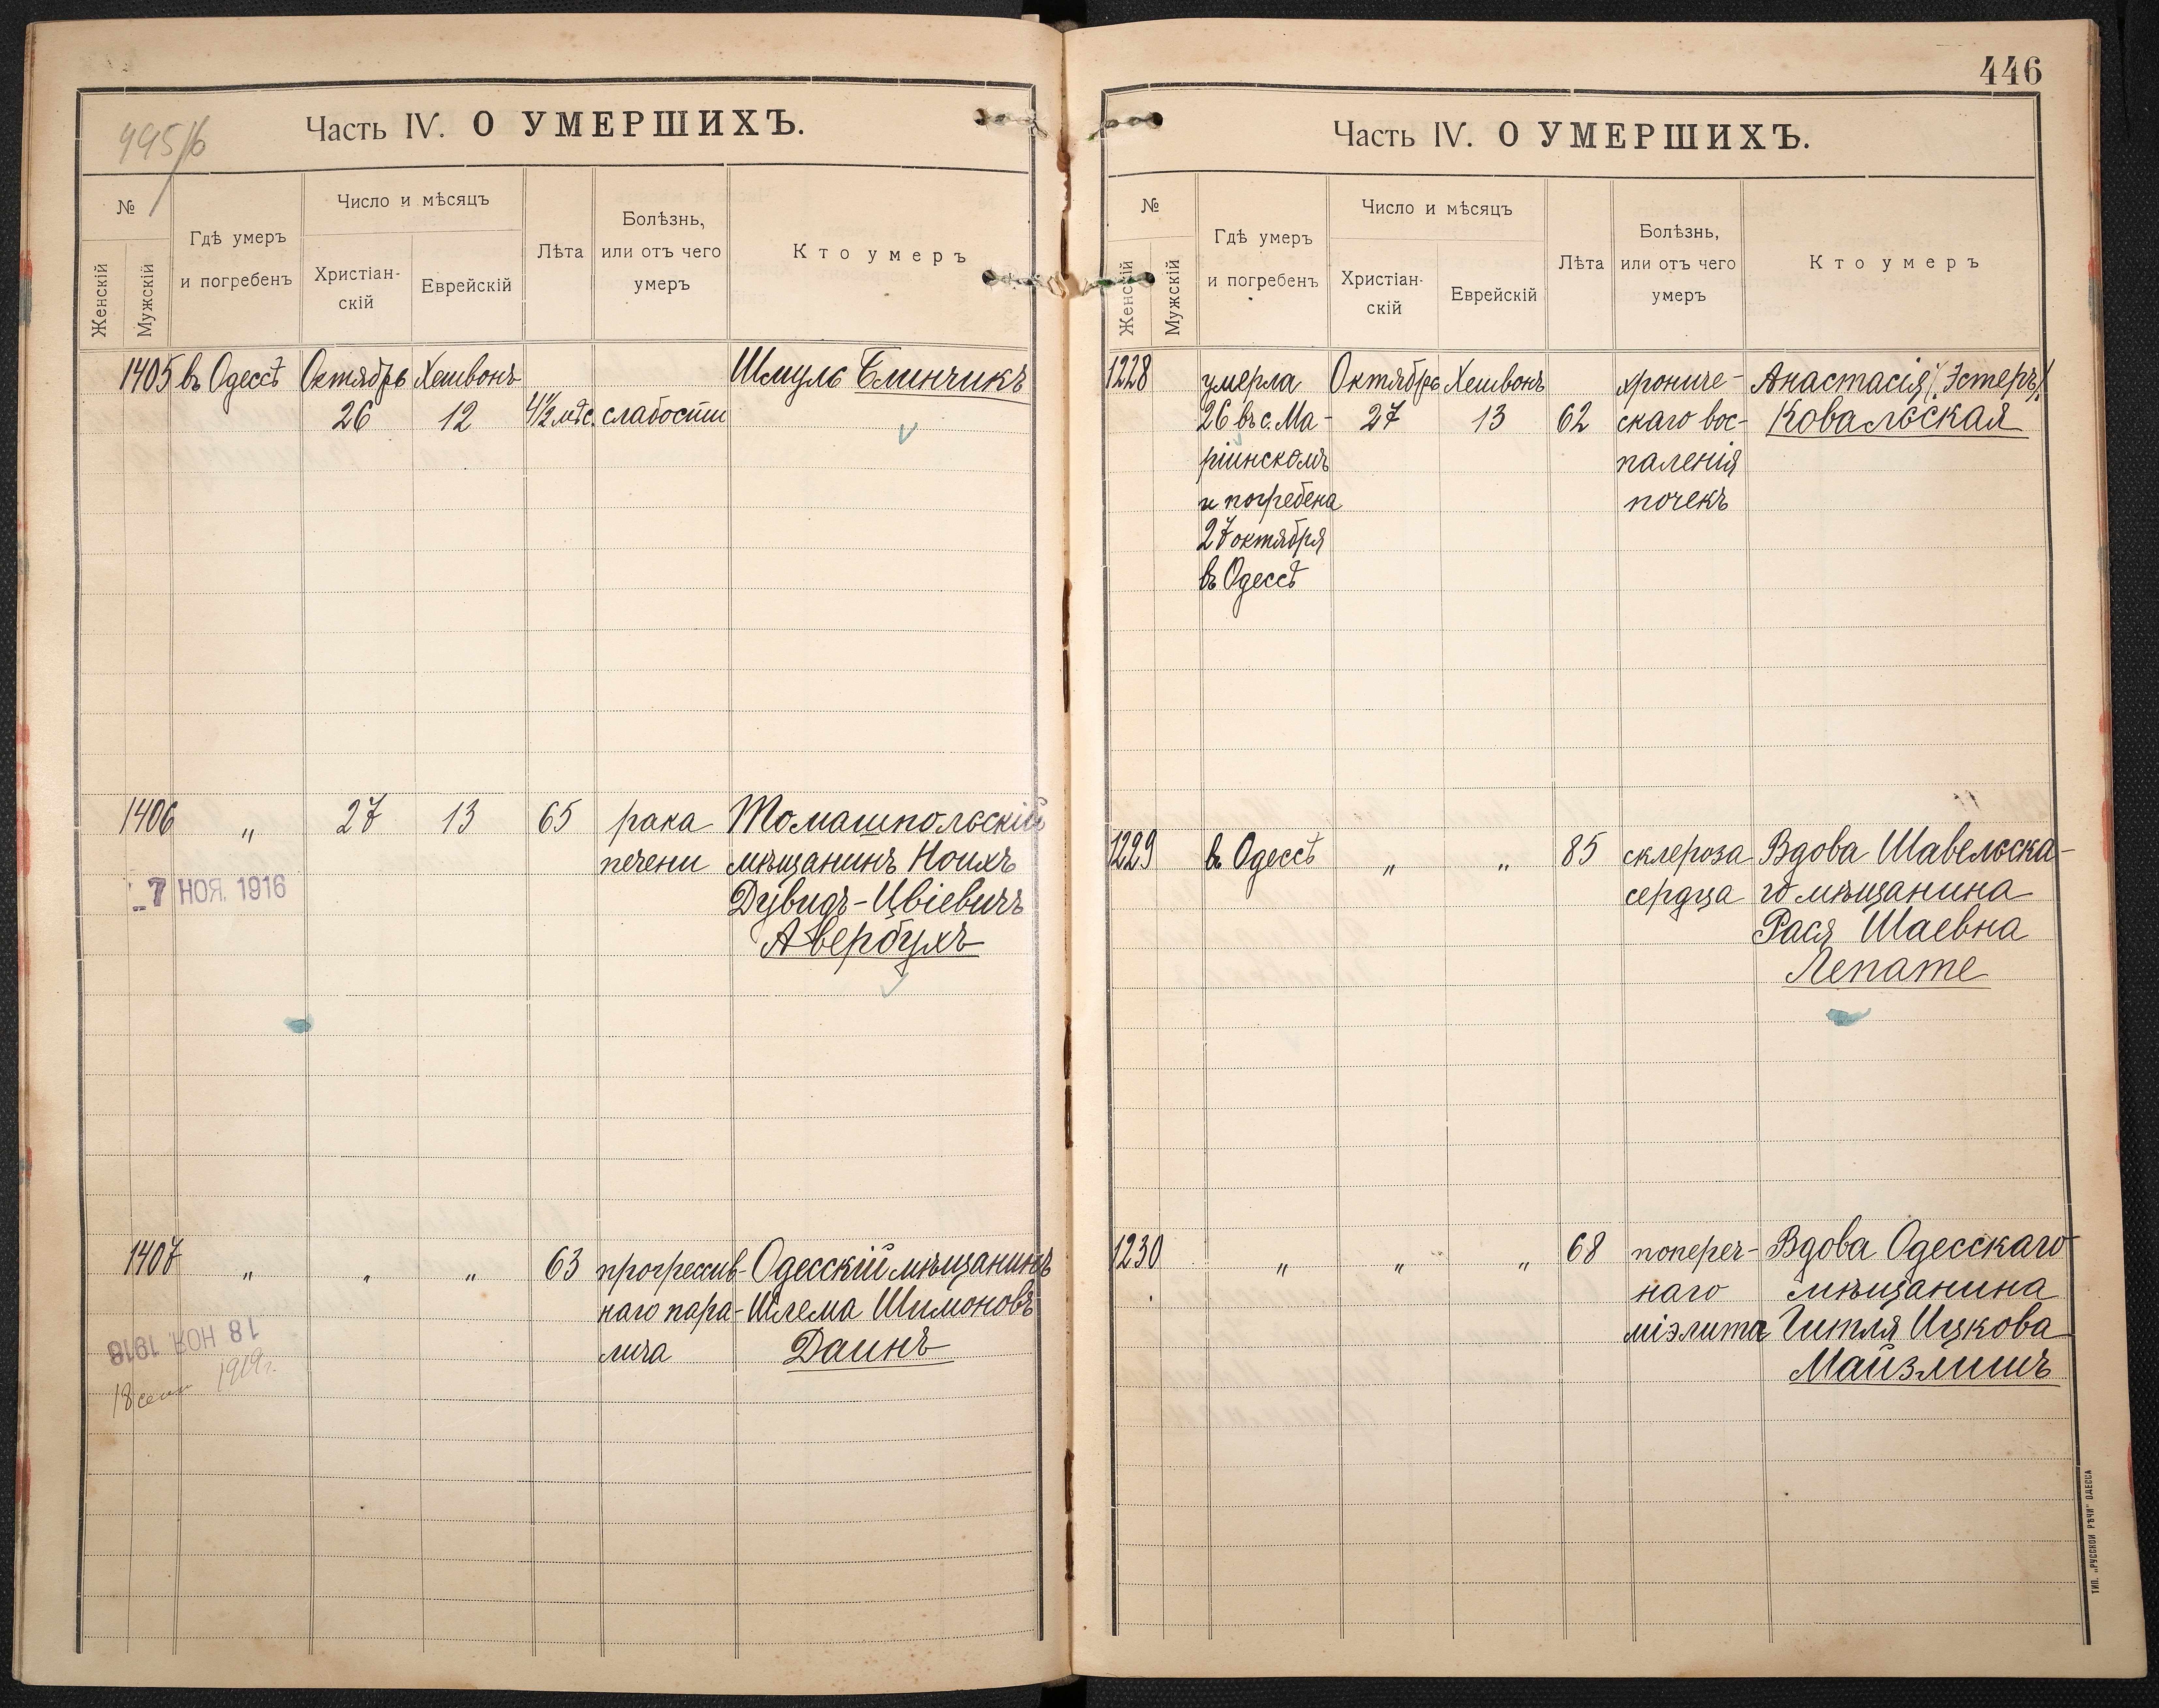 995/16
Часть IV. О УМЕРШИХЪ.
№
Женскій
Мужскій
Гдѣ умеръ
и погребенъ
Число и мѣсяцъ
Христіан-
скій
Еврейскій
Лѣта
Болѣзнь,
или отъ чего
умеръ
Кто умеръ
1405 въ Одессѣ Октябрь Хешвонъ Шмуль Блинчикъ
26 12 4½ мѣс. слабости
1406 „ 27 13 65 рака Томашпольскій
печени мѣщанинъ Ноихъ
7 НОЯ. 1916
Дувидъ-Цвіевичъ
Авербухъ
1407 „ „ „ 63 прогрессив- Одесскій мѣщанинъ
наго пара- Шлема Шимоновъ
лича Даинъ
18 НОЯ. 1918
18 сент 1919г.
446
Часть IV. О УМЕРШИХЪ.
№
Женскій
Мужскій
Гдѣ умеръ
и погребенъ
Число и мѣсяцъ
Христіан-
скій
Еврейскій
Лѣта
Болѣзнь,
или отъ чего
умеръ
Кто умеръ
1228 умерла Октябрь Хешвонъ хрониче- Анастасія /Эстеръ/
26 въ с. Ма- 27 13 62 скаго вос- Ковальская
ріинскомъ паленія
и погребена почекъ
27 октября
въ Одессѣ
1229 въ Одессѣ „ „ 85 склероза Вдова Шавельска-
сердца го мѣщанина
Рася Шаевна
Лепате
1230 „ „ „ 68 попереч- Вдова Одесскаго
наго мѣщанина
міэлита Гитля Ицкова
Майзлишъ
ТИП. „РУССКОЙ РѢЧИ“ ОДЕССА